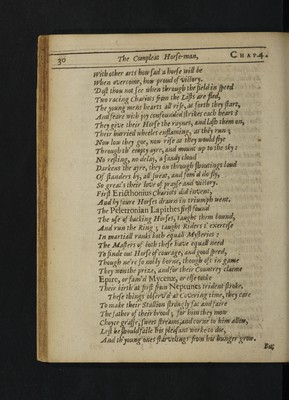 30 The Compleat Horse-man, CHAP.4.
With other arts how sad a horse will be
When overcome, how proud of victory.
Dost thou not see when through the field in speed
Two racing Chariots from the Lists are fled,
The young mens hearts all rise, as forth they start,
And feare with joy confounded strikes each heart?
They give their Horse the raynes, and lash them on,
Their hurried wheeles enflaming, as they run;
Now low they goe, now rise as they would flye
Through th' empty ayre, and mount up to the sky:
No resting, no delay, a sandy cloud
Darkens the ayre, they on through shoutings loud
Of standers by, all sweat, and fom'd do fly,
So great's their love of prayse and victory.
First Ericthonius Chariots did invent,
And by foure Horses drawn in triumph went.
The Peletronian Lapithes first found
The use of backing Horses, taught them bound,
And run the Ring; taught Riders t' exercise
In martiall ranks both equall Mysteries:
The Masters of both these have equall need
To finde out Horse of courage, and good speed,
Though ne're so nobly borne, though oft in game
They won the prize, and for their Country claime
Epire, or fam'd Mycenæ, or else take
Their birth at first from Neptunes trident stroke.
These things observ'd at covering time, they care
To make their Stallion strong, fat and faire
The father of their brood; for him they mow
Choyce grasse, sweet streams, and corne to him allow,
Lest he should faile his pleasant worke to doe,
And th' young ones starvelings from his hunger grow.
But